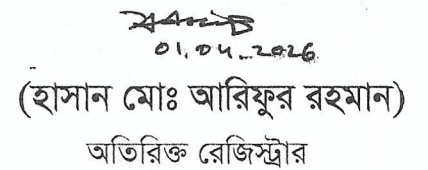 01.04.2026
(হাসান মোঃ আরিফুর রহমান)
অতিরিক্ত রেজিস্ট্রার